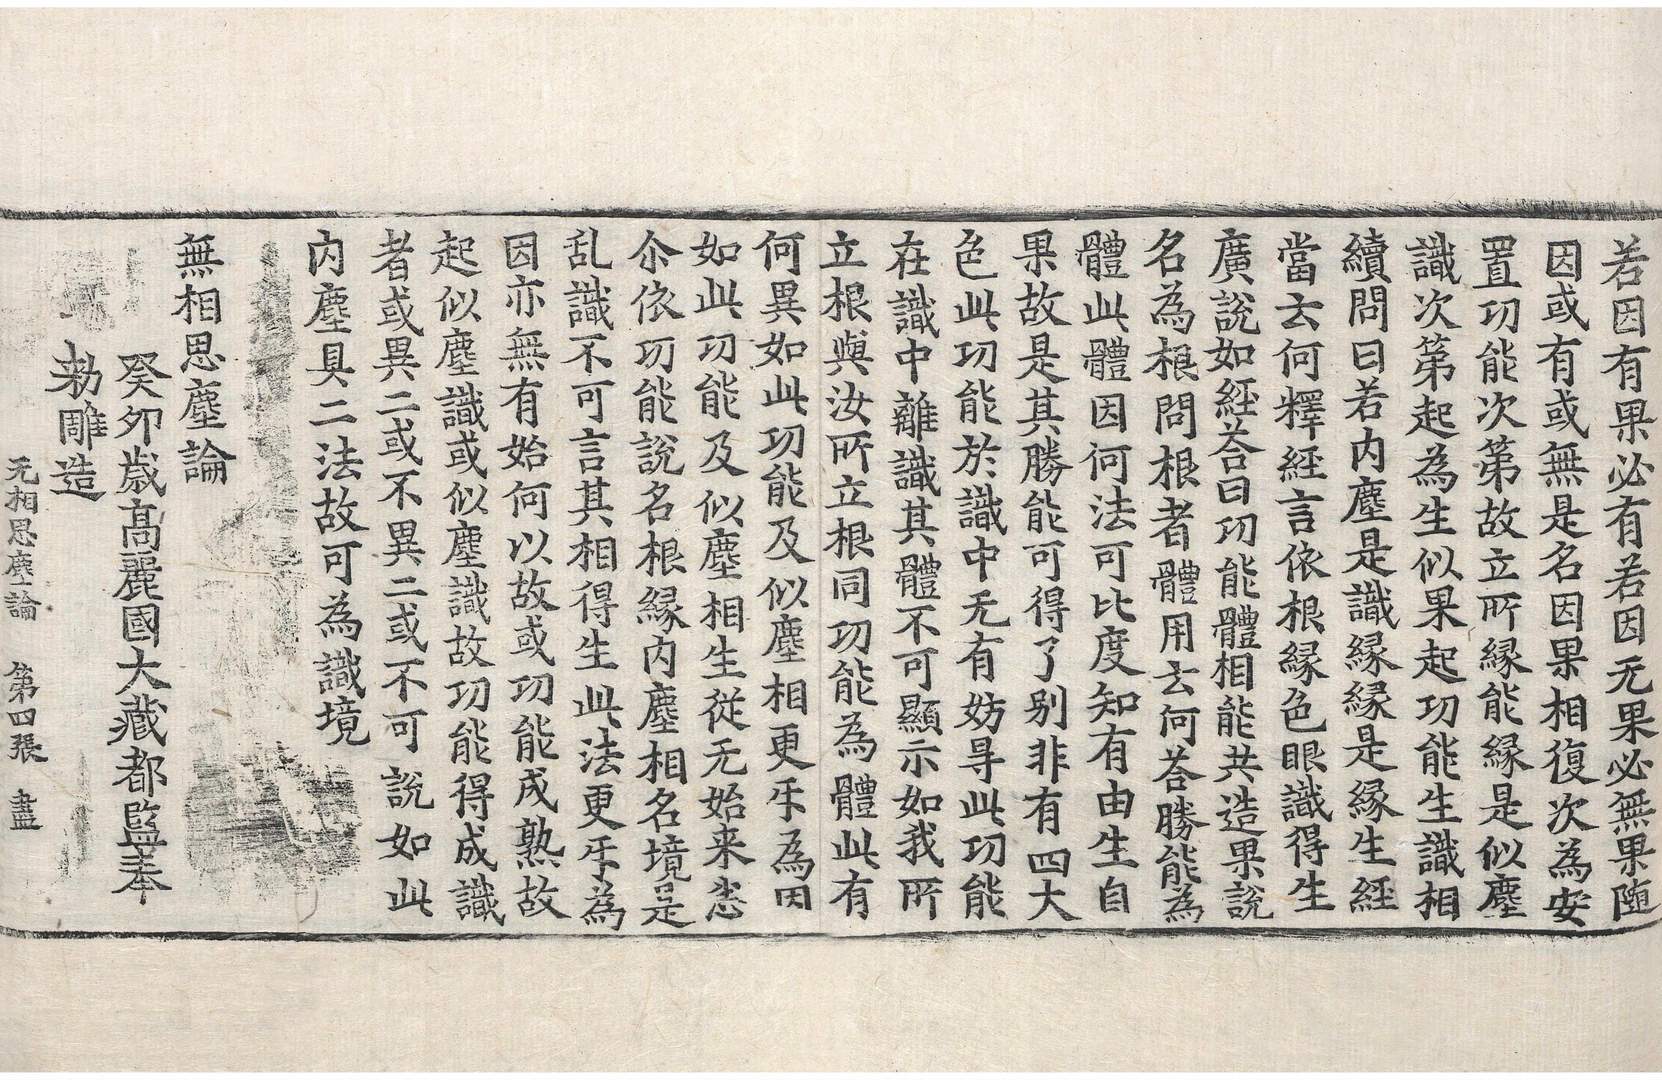 若因有果必有若因无果必無果随
因或有或無是名因果相復次為安
置功能次第故立所縁能縁是似塵
識次第起為生似果起功能生識相
續問曰若内塵是識縁縁是縁生經
當云何釋經言依根縁色眼識得生
廣說如經荅曰功能體相能共造果說
名為根問根者體用云何荅勝能為
體此體因何法可比度知有由生自
果故是其勝能可得了別非有四大
色此功能於識中无有妨㝵此功能
在識中離識其體不可顯示如我所
立根與汝所立根同功能為體此有
何異如此功能及似塵相更乐為因
如此功能及似塵相生從无始来悉
尒依功能說名根縁内塵相名境是
乱識不可言其相得生此法更乐為
因亦無有始何以故或功能成熟故
起似塵識或似塵識故功能得成識
者或異二或不異二或不可說如此
内塵具二法故可為識境
無相思塵論
癸卯歳高麗國大藏都監奉
勅雕造
无相思塵論 第四張 盡